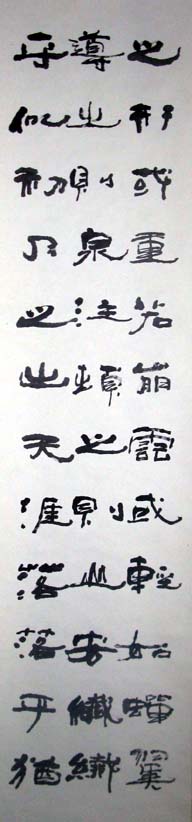 之形或重若崩雲或輕如蟬翼
導之則泉注頓之則山安纖纖
乎似初月之出天涯落落乎猶